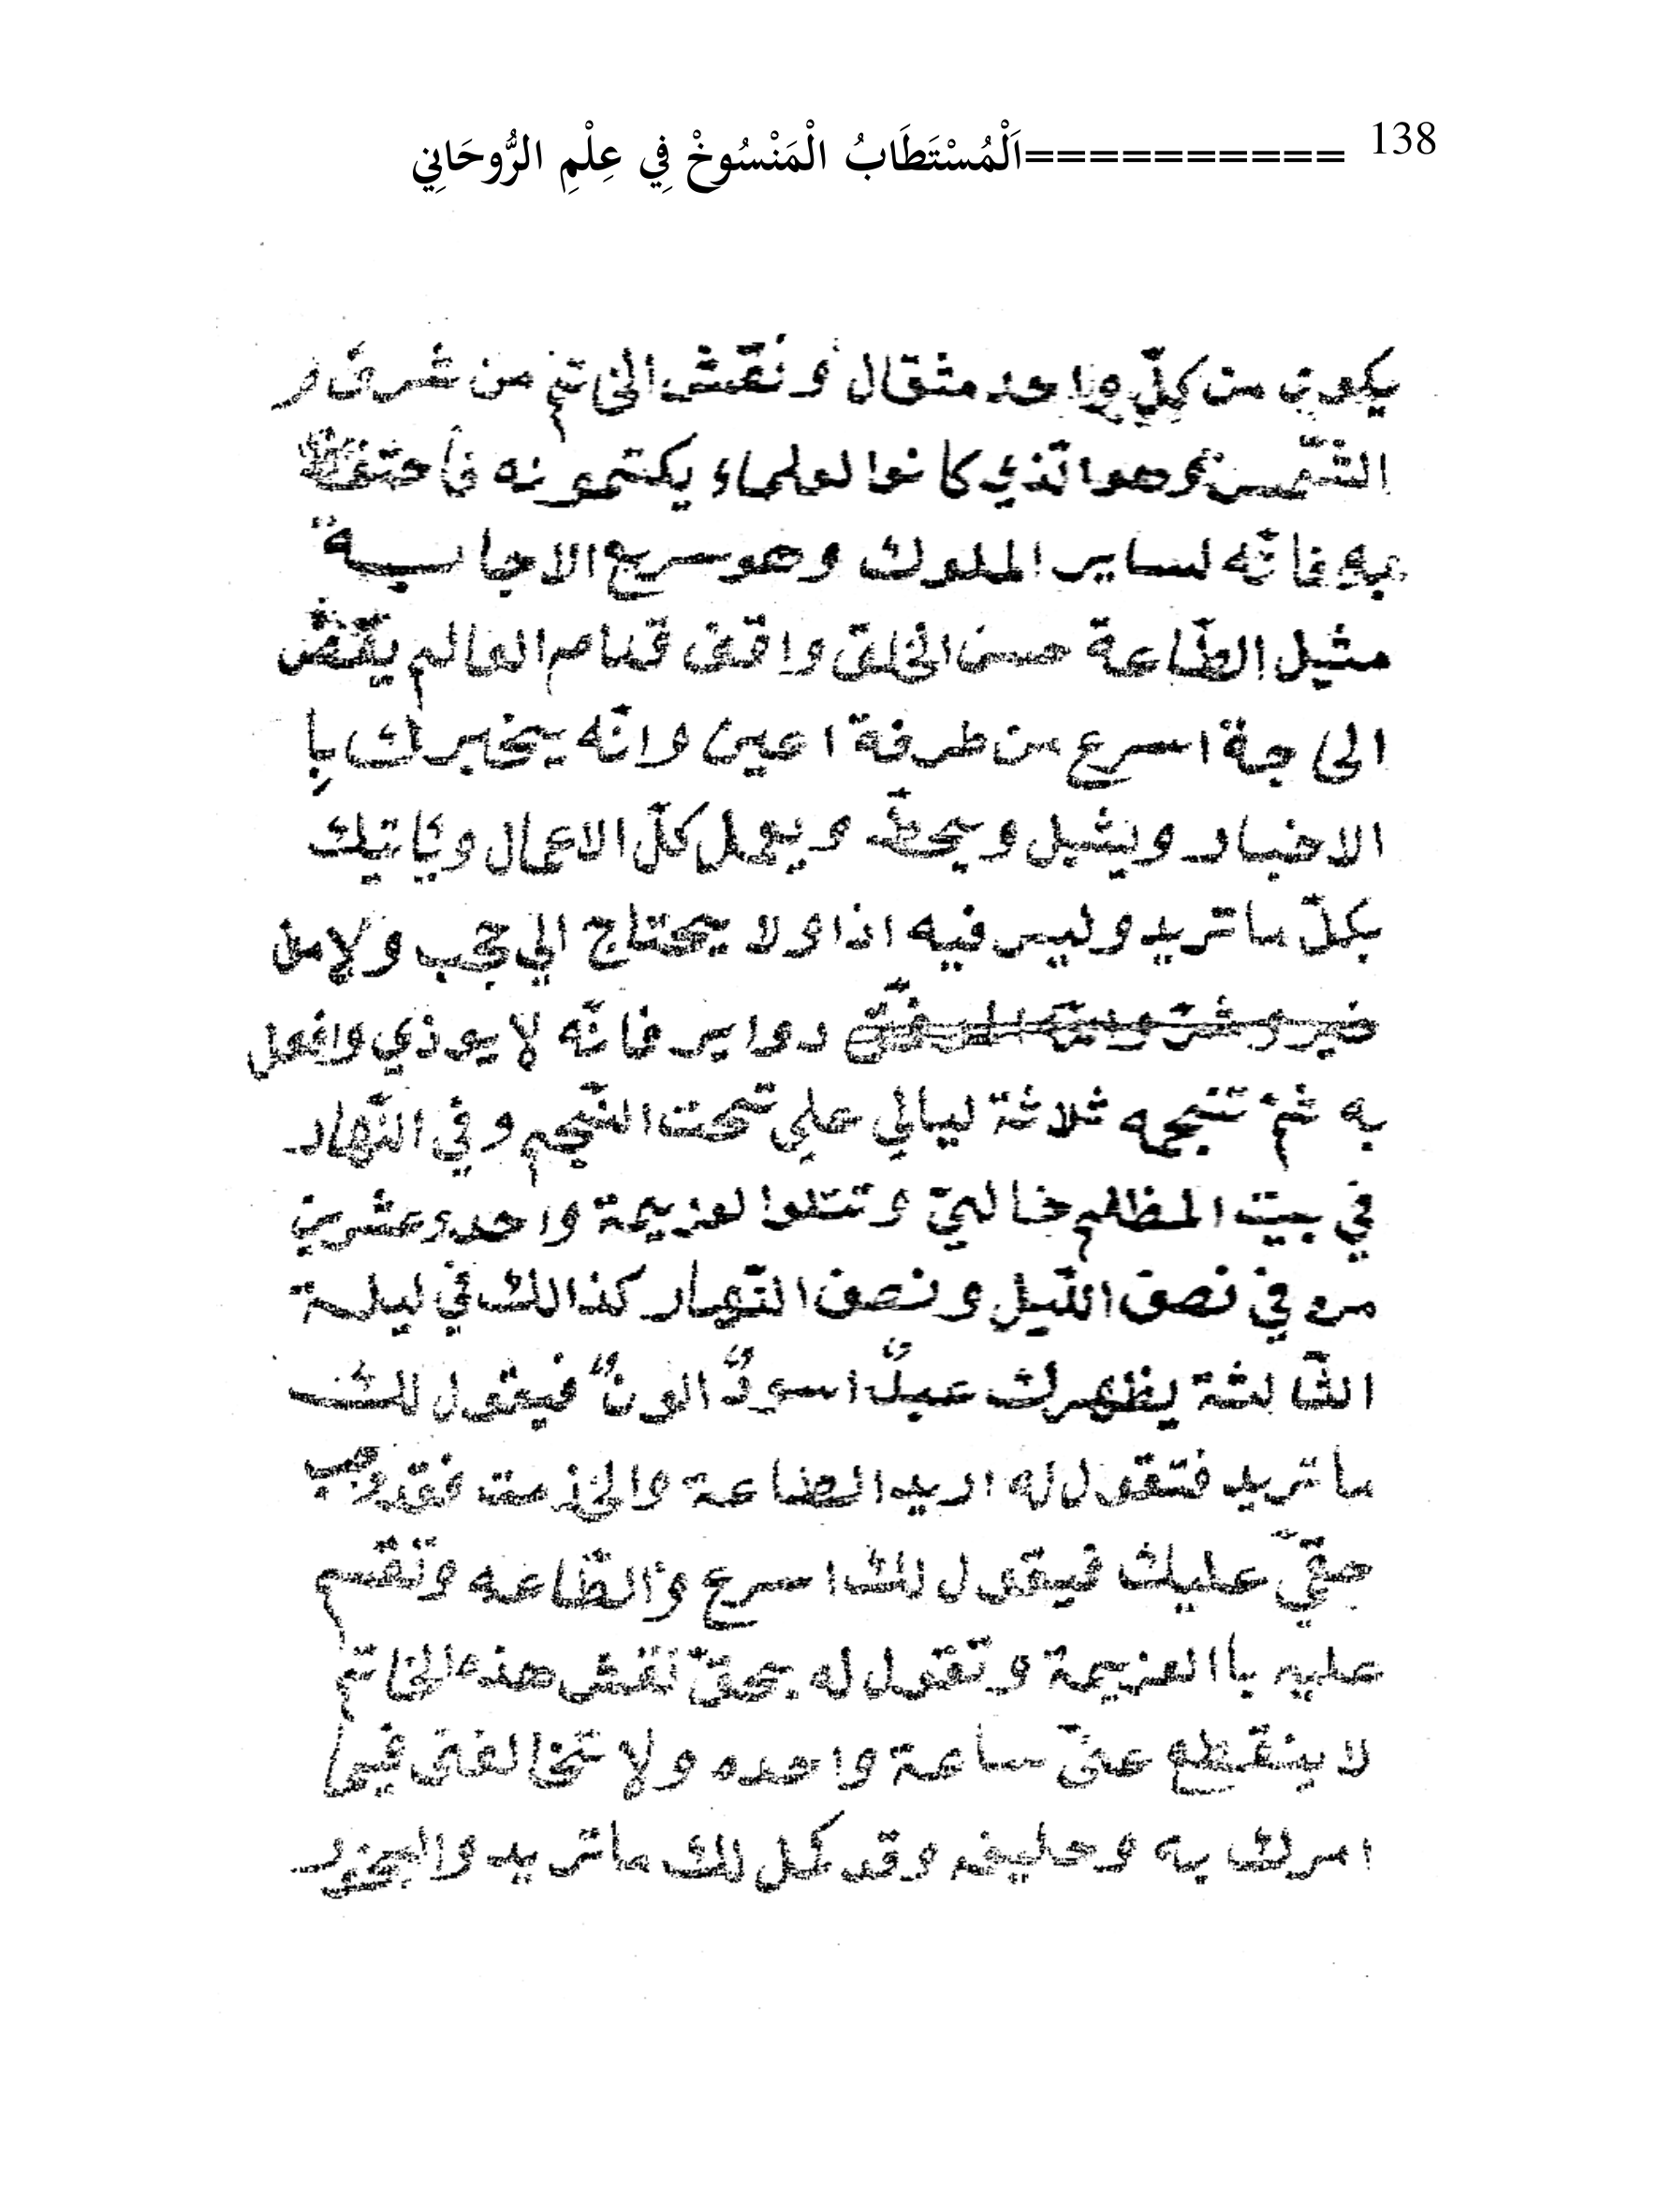 138 ==========اَلْمُسْتَطَابُ الْمَنْسُوخْ فِي عِلْمِ الرُّوحَانِي
يكون من كلّ واحد مثقال ونقش الخاتم من شرف
الشّمس وهوا تّذي كانوا لعلماء يكتمونه فاحتفظ
به فانّه لساير الملوك وهو سريع الاجابة
مثيل الطّاعة حسن الخلق واقف قدام العالم يقض
الحاجة اسرع من طرفة اعين وانّه يخبرك با
الاخبار ويشيل ويحطّ ويعمل كلّ الاعمال وياتيك
بكلّ ما تريد وليس فيه اذا ولا يحتاج الي حجب ولا من
دواير فانّه لا يوذي وافعل
به ثمّ تنجمه ثلاثة ليالي علي تحت النّجم وفي النّهار
في بيت المظلم خاليّ وتتلوا لعزيمة واحد وعشرين
من في نصق اللّيل ونصف النّهار كذالك في ليلة
الثّالثة يظهرك عبدٌ اسودٌ الونٌ فيقول لك
ما تريد فتقول له اريد الطاعة والخذمت فقد وجب
حقّي عليك فيقول لك اسرع والطّاعه وتقسم
عليه با العزيمة وتقول له بحقّ نقش هذه الخاتم
لا ينقطع عنّي ساعة واحده ولا تخالفني فيما
امرك به وحليفه وقد كمل لك ما تريد والبخور